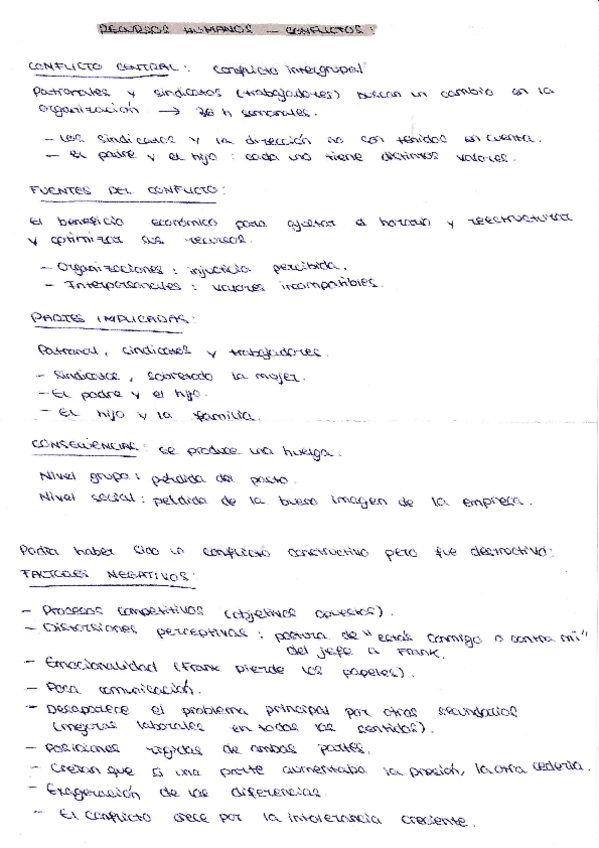 RECURSOS HUMANOS — CONFLICTOS:
CONFLICTO CENTRAL: conflicto intergrupal
Patronales y sindicatos (trabajadores) buscan un cambio en la
organización → 36 h semanales.
- Los sindicatos y la dirección no son tenidos en cuenta.
- El padre y el hijo: cada uno tiene distintos valores.
FUENTES DEL CONFLICTO:
El beneficio económico para ajustar el horario y reestructurar
y optimizar sus recursos.
- Organizaciones: injusticia percibida.
- Interpersonales: valores incompatibles.
PARTES IMPLICADAS:
Patronal, sindicatos y trabajadores.
- Sindicatos, sobretodo la mujer.
- El padre y el hijo.
- El hijo y la familia.
CONSECUENCIAS: se produce una huelga.
Nivel grupo: pérdida del pacto.
Nivel social: pérdida de la buena imagen de la empresa.
Podría haber sido un conflicto constructivo pero fue destructivo:
FACTORES NEGATIVOS:
- Procesos competitivos (objetivos opuestos).
- Distorsiones perceptivas: postura de "estás conmigo o contra mí"
del jefe a Frank.
- Emocionalidad (Frank pierde los papeles).
- Poca comunicación.
- Desaparece el problema principal por otros secundarios
(mejoras laborales en todos los sentidos).
- Posiciones rígidas de ambas partes.
- Creían que si una parte aumentaba la presión, la otra cedería.
- Exageración de las diferencias.
- El conflicto crece por la intolerancia creciente.